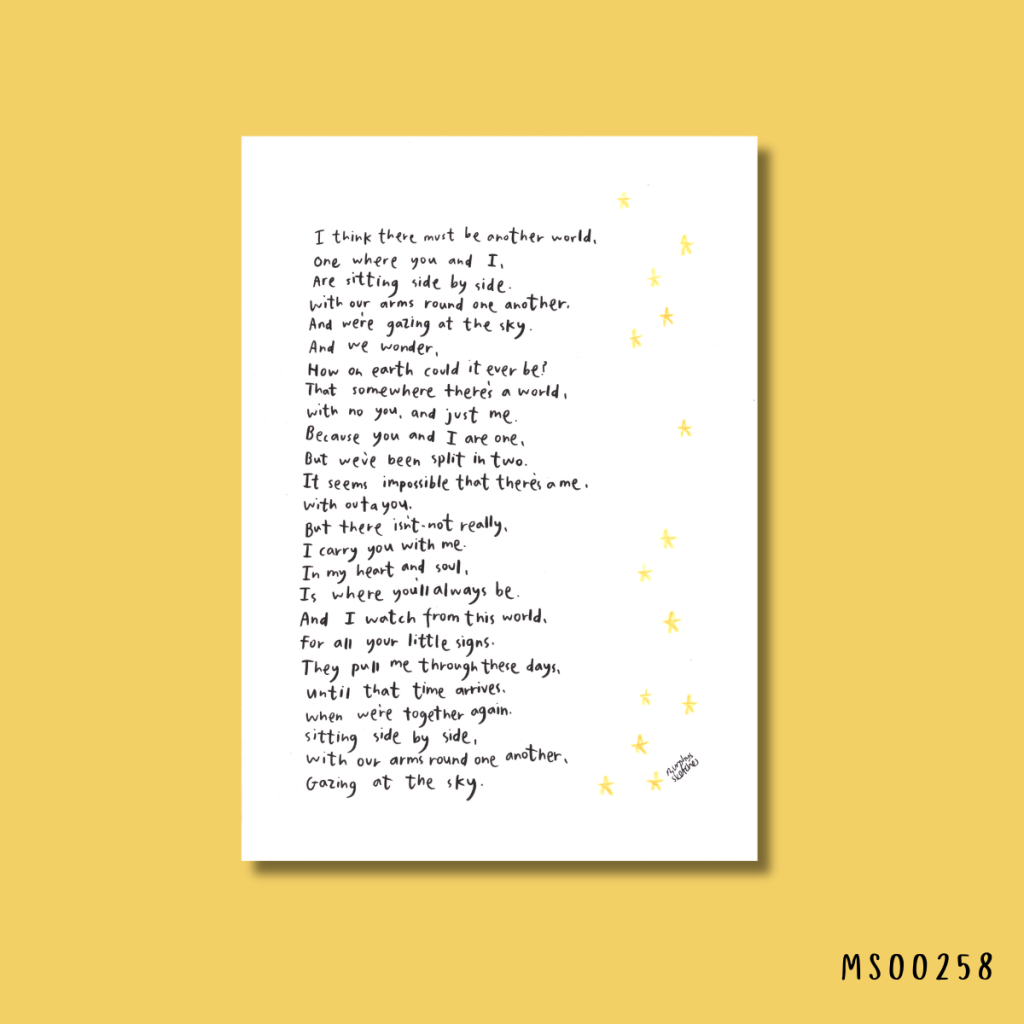 I think there must be another world,
One where you and I,
Are sitting side by side.
With our arms round one another.
And we're gazing at the sky.
And we wonder,
How on earth could it ever be?
That somewhere there's a world,
With no you, and just me.
Because you and I are one,
But we've been split in two.
It seems impossible that there's a me,
with out a you.
But there isn't-not really,
I carry you with me.
In my heart and soul,
Is where you'll always be.
And I watch from this world,
For all your little signs.
They pull me through these days,
until that time arrives.
when we're together again.
sitting side by side,
With our arms round one another,
Gazing at the sky.
sketches
MS00258